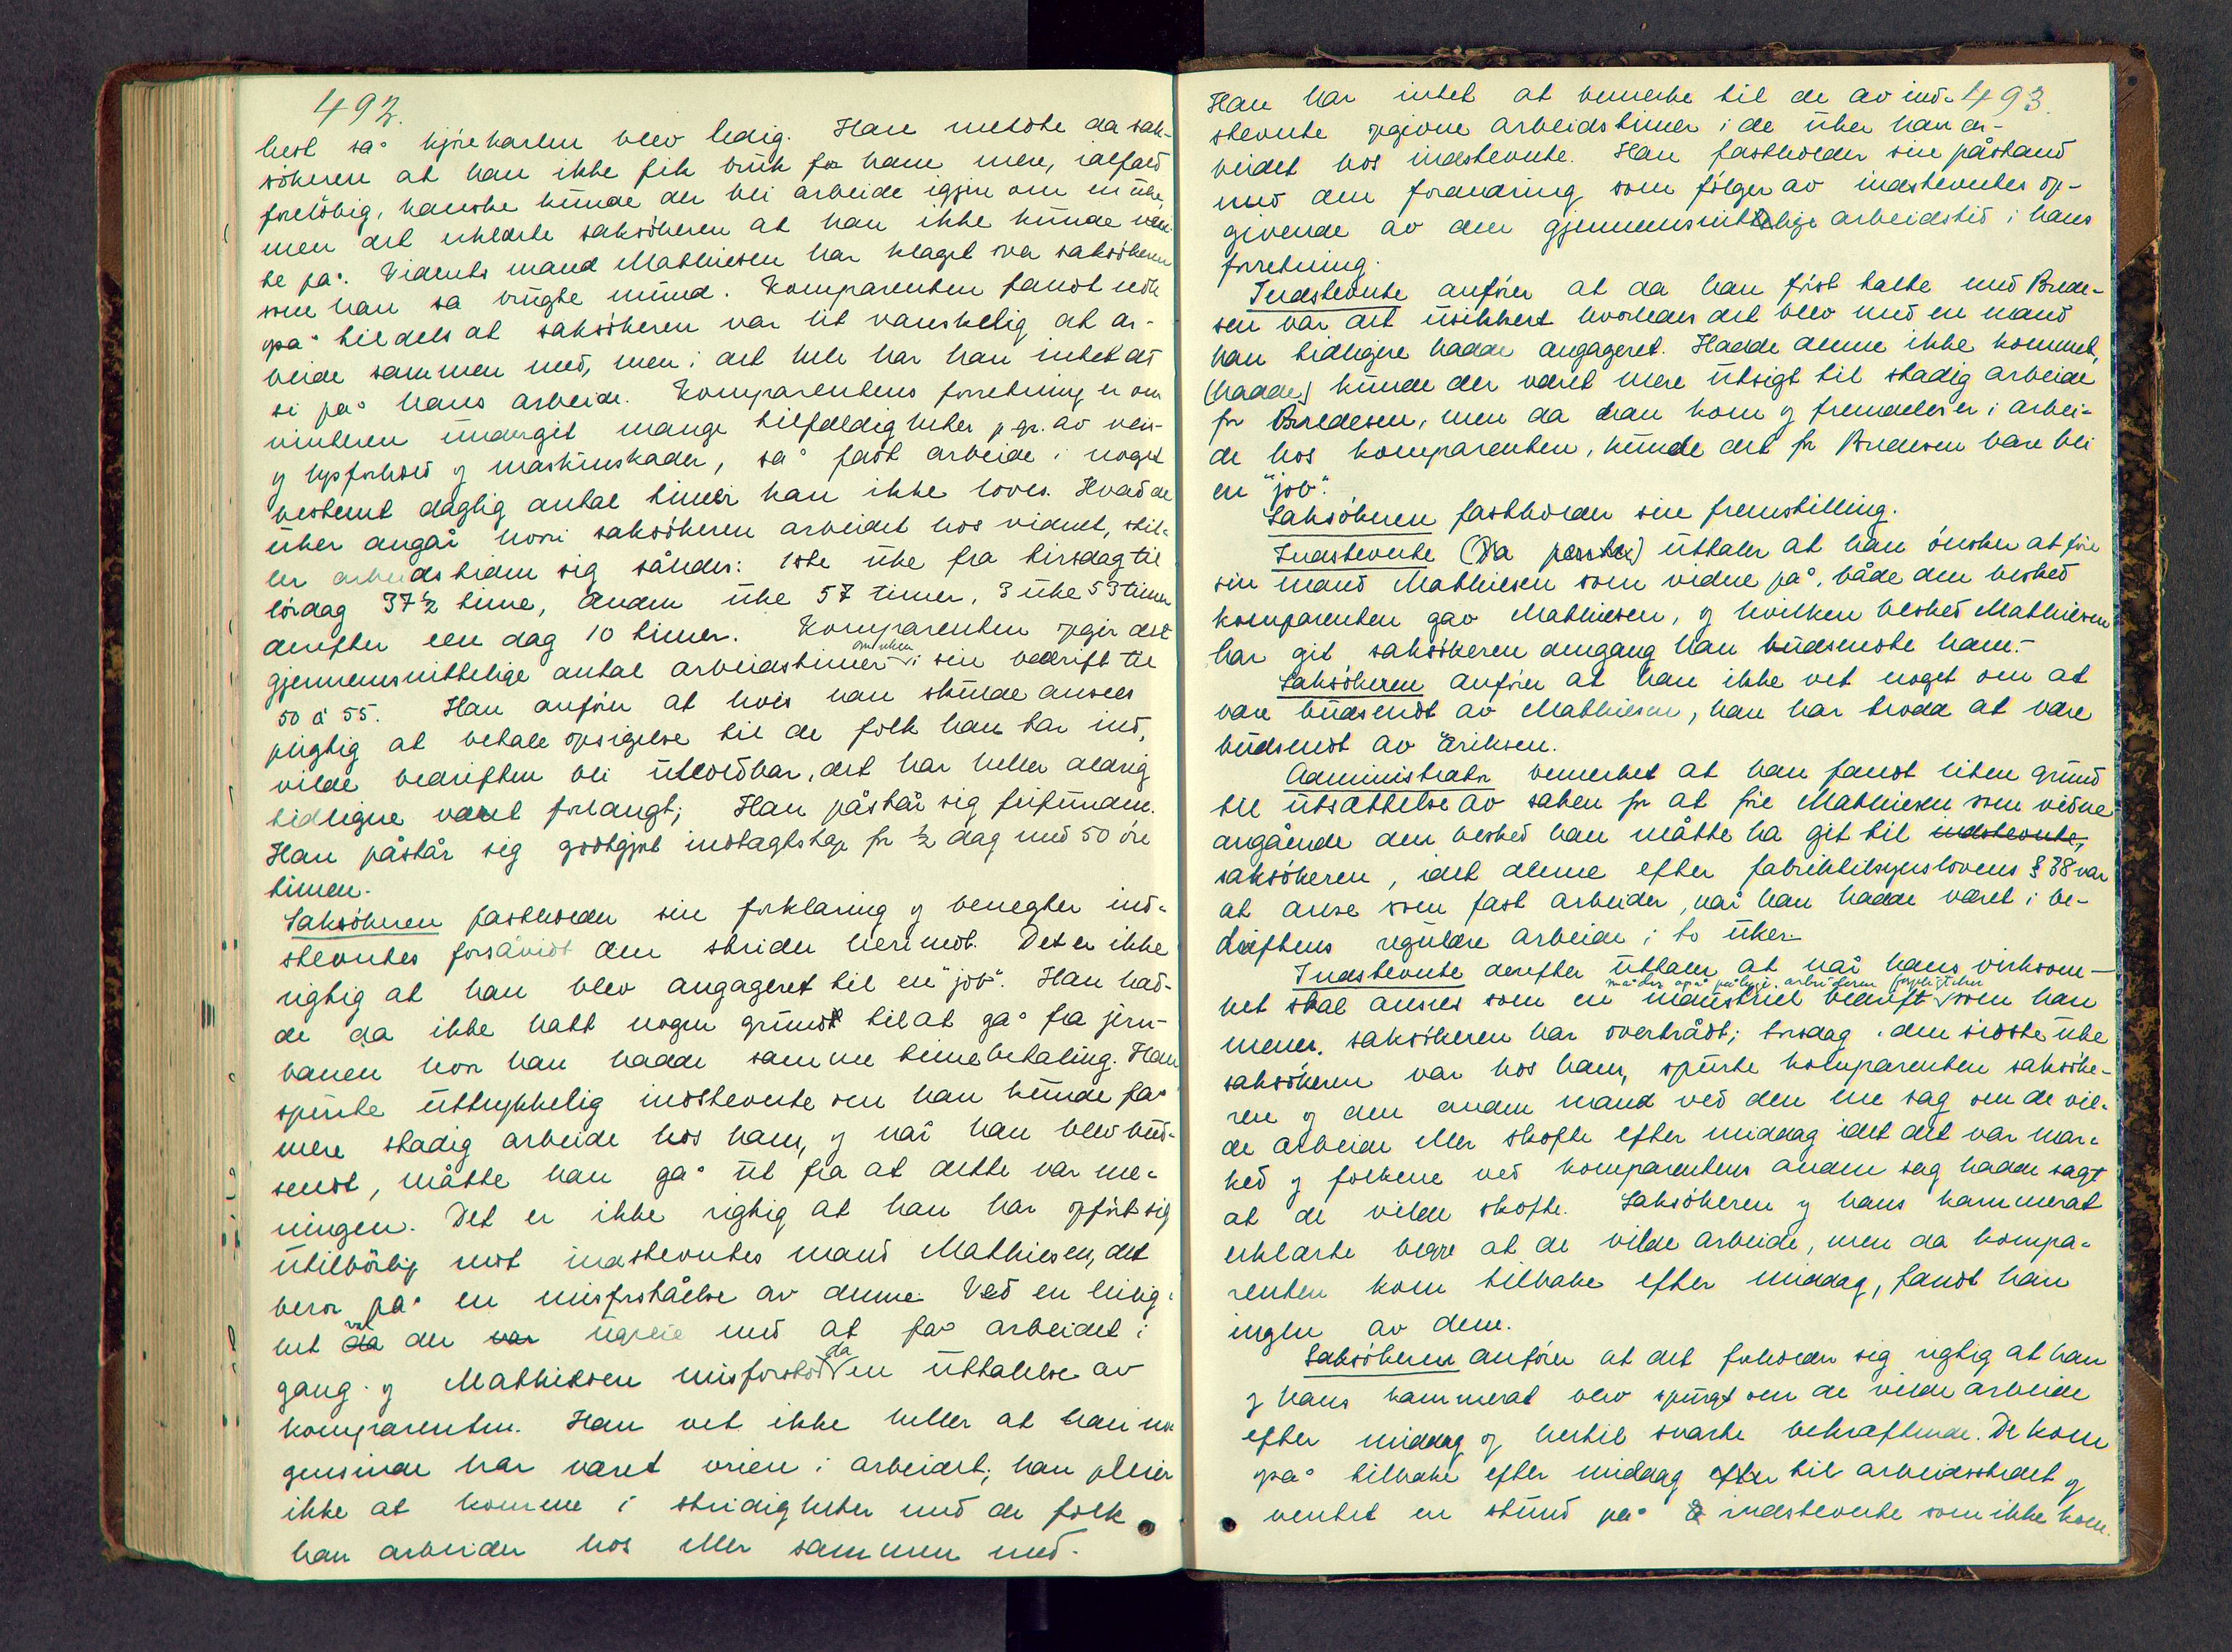 492.
hest så kjørekarlen blev ledig. Han meldte da sak-
søkeren at han ikke fik bruk for ham mere, ialfald
foreløbig, kanske kunde der bli arbeide igjen om en uke,
men det erklærte saksøkeren at han ikke kunde ven-
te på. Vidents mand Mathiesen har klaget over saksøkeren
som han sa brugte mund. Komparenten fandt selv
også tildels at saksøkeren var litt vanskelig at ar-
beide sammen med, men i det hele har han intet at
si på hans arbeide. Komparentens forretning er om
vinteren undergit mange tilfældigheter p.gr. av veir-
og lysforhold og maskinskader, så fast arbeide i noget
bestemt daglig antal timer kan ikke loves. Hvad de
uker angår hvori saksøkeren arbeidet hos vidnet, stil-
ler arbeidstiden sig således: 1ste uke fra tirsdag til
lørdag 37½ time, anden uke 57 timer, 3 uke 53 timer
derefter een dag 10 timer. Komparenten opgir det
gjennemsnittelige antal arbeidstimer om uken i sin bedrift til
50 à 55. Han anfører at hvis han skulde ansees
pligtig at betale opsigelse til de folk han tar ind,
vilde bedriften bli uholdbar, det har heller aldrig
tidligere været forlangt; Han påstår sig frifunden.
Han påstår sig godtgjort indtægtstap for ½ dag med 50 øre
timen.
Saksøkeren fastholder sin forklaring og benegter ind-
stevntes forsåvidt den strider herimot. Det er ikke
rigtig at han blev engageret til en "job". Han had-
de da ikke hatt nogen grund til at gå fra jern-
banen hvor han hadde samme timebetaling. Han
spurte uttrykkelig indstevnte om han kunde få
mere stadig arbeide hos ham, og når han blev bud-
sendt, måtte han gå ut fra at dette var me-
ningen. Det er ikke rigtig at han har opført sig
utilbørlig mot indstevntes mand Mathiesen, det
beror på en misforståelse av denne. Ved en leilig-
het da der var ugreie med at få arbeidet i
gang og Mathiesen misforstod da en uttalelse av
komparenten. Han vet ikke heller at han no-
gensinde har været vrien i arbeidet; han pleier
ikke at komme i stridigheter med de folk
han arbeider hos eller sammen med.
493.
Han har intet at bemerke til de av ind-
stevnte opgivne arbeidstimer i de uker han ar-
beidet hos indstevnte. Han fastholder sin påstand
med den forandring som følger av indstevntes op-
givende av den gjennemsnittelige arbeidstid i hans
forretning.
Indstevnte anfører at da han først talte med Brede-
sen var det usikkert hvorledes det blev med en mand
han tidligere hadde engageret. Hadde denne ikke kommet,
(hadde) kunde der været mere utsigt til stadig arbeide
for Bredesen, men da han kom og fremdeles er i arbei-
de hos komparenten, kunde det for Bredesen bare bli
en "job".
Saksøkeren fastholder sin fremstilling.
Indstevnte uttaler at han ønsker at føre
sin mand Mathiesen som vidne på, både den besked
komparenten gav Mathiesen, og hvilken besked Mathiesen
har git saksøkeren dengang han budsendte ham.-
Saksøkeren anfører at han ikke vet noget om at
være budsendt av Mathiesen, han har trodd at være
budsendt av Eriksen.
Administrator bemerket at han fandt liten grund
til utsættelse av saken for at føre Mathiesen som vidne
angående den besked han måtte ha git til indstevnte,
saksøkeren, idet denne efter fabriktilsynslovens § 38 var
at anse som fast arbeider, når han hadde været i be-
driftens regulære arbeide i to uker.
Indstevnte derefter uttaler at når hans virksom-
het skal ansees som en industriel bedrift må der også påligge arbeideren forpligtelser som han
mener saksøkeren har overtrådt; torsdag den sidste uke
saksøkeren var hos ham, spurte komparenten saksøke-
ren og den anden mand ved den ene sag om de vil-
de arbeide eller skofte efter middag idet det var mar-
ked og folkene ved komparentens anden sag hadde sagt
at de vilde skofte. Saksøkeren og hans kammerat
erklærte begge at de vilde arbeide, men da kompa-
renten kom tilbake efter middag, fandt han
ingen av dem.
Saksøkeren anfører at det forholder sig rigtig at han
og hans kammerat blev spurgt om de vilde arbeide
efter middag og hertil svarte bekræftende. De kom
også tilbake efter middag efter til arbeidsstedet og
ventet en stund på indstevnte som ikke kom.